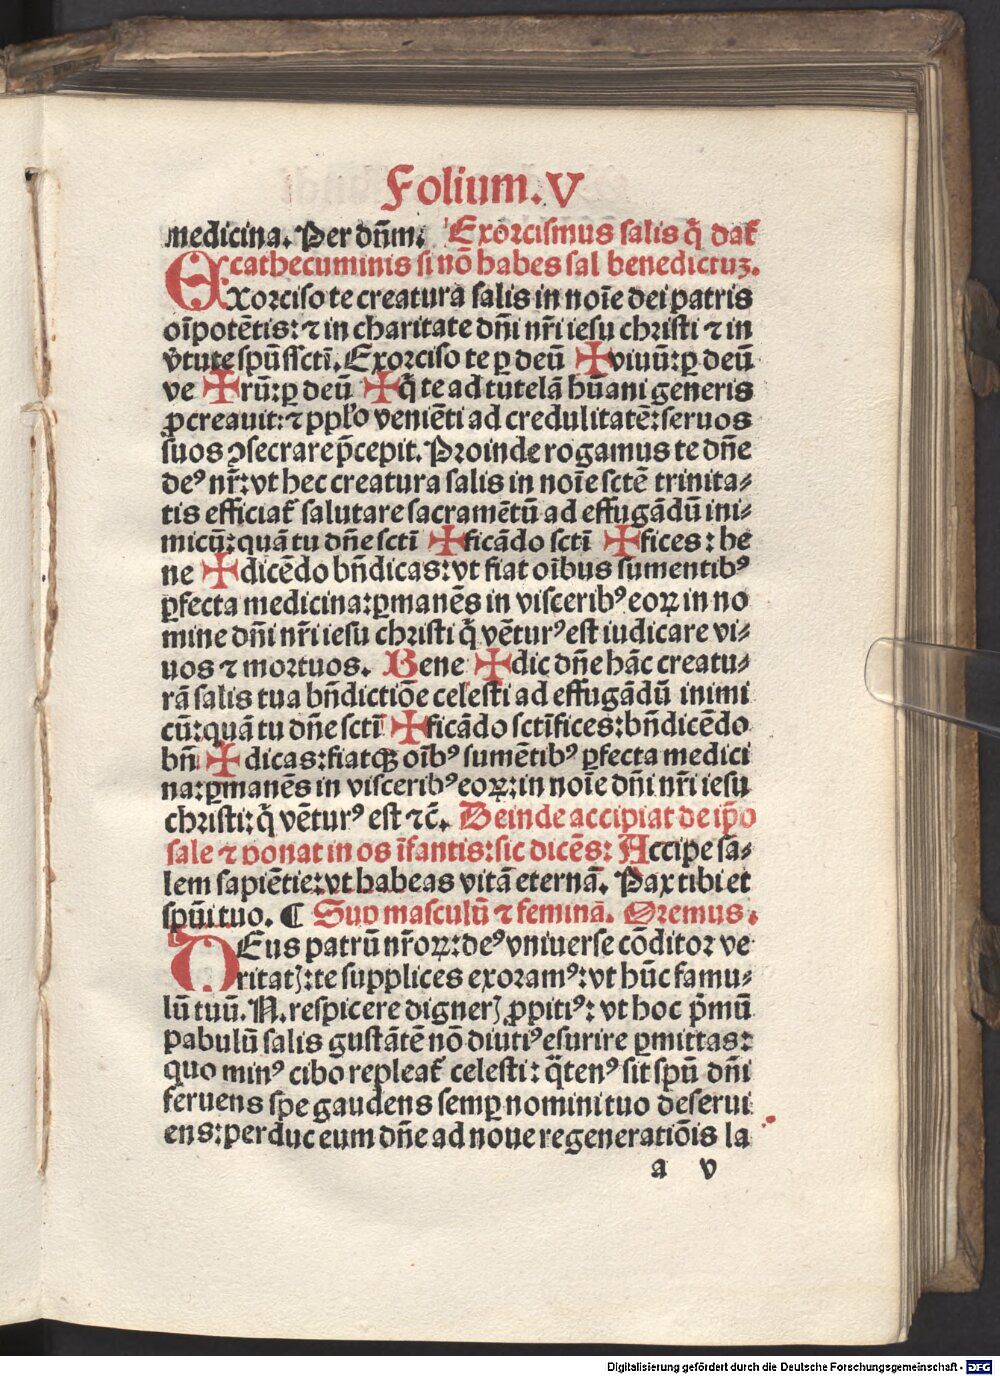 Folium. V
medicina. Per dn̄m. Exorcismus salis q̄ dat᷑
cathecuminis si nō habes sal benedictuȝ.
EXorciso te creatura salis in noīe dei patris
oīpotētis: ⁊ in charitate dn̄i nr̄i iesu christi ⁊ in
v̄tute spūssctī. Exorciso te ꝑ deū ✠ viuū: ꝑ deū
ve ✠ rū: ꝑ deū ✠ q̄ te ad tutelā hūani generis
ꝓcreauit: ⁊ pplo veniēti ad credulitatē: seruos
suos ꝯsecrare p̄cepit. Proinde rogamus te dn̄e
deꝰ nr̄: vt hec creatura salis in noīe sctē trinita⸗
tis efficiat᷑ salutare sacramētū ad effugādū ini⸗
micū: quā tu dn̄e sctī ✠ ficādo sctī ✠ fices: be
ne ✠ dicēdo bn̄dicas: vt fiat oībus sumentibꝰ
ꝑfecta medicina: ꝑmanēs in visceribꝰ eoꝝ in no
mine dn̄i nr̄i iesu christi q̄ vēturꝰ est iudicare vi⸗
uos ⁊ mortuos. Bene ✠ dic dn̄e hāc creatu⸗
rā salis tua bn̄dictiōe celesti ad effugādū inimi
cū: quā tu dn̄e sctī ✠ ficādo sctīfices: bn̄dicēdo
bn̄ ✠ dicas: fiatqꝫ oībꝰ sumētibꝰ ꝑfecta medici
na: ꝑmanēs in visceribꝰ eoꝝ: in noīe dn̄i nr̄i iesu
christi: q̄ vēturꝰ est ⁊c̄. Deinde accipiat de ip̄o
sale ⁊ ponat in os īfantis: sic dicēs: Accipe sa⸗
lem sapiētie: vt habeas vitā eternā. Pax tibi et
spūi tuo. ¶ Sup masculū ⁊ feminā. Oremus.
DEus patrū nr̄oꝝ: deꝰ vniuerse cōditor ve
ritatꝭ: te supplices exoramꝰ: vt hūc famu⸗
lū tuū. N. respicere dignerꝭ ꝓpitiꝰ: vt hoc p̄mū
pabulū salis gustātē nō diutiꝰ esurire ꝑmittas:
quo minꝰ cibo repleat᷑ celesti: q̄tenꝰ sit spū dn̄i
feruens spe gaudens semꝑ nomini tuo deserui
ens: perduc eum dn̄e ad noue regeneratiōis la
a v
Digitalisierung gefördert durch die Deutsche Forschungsgemeinschaft - DFG